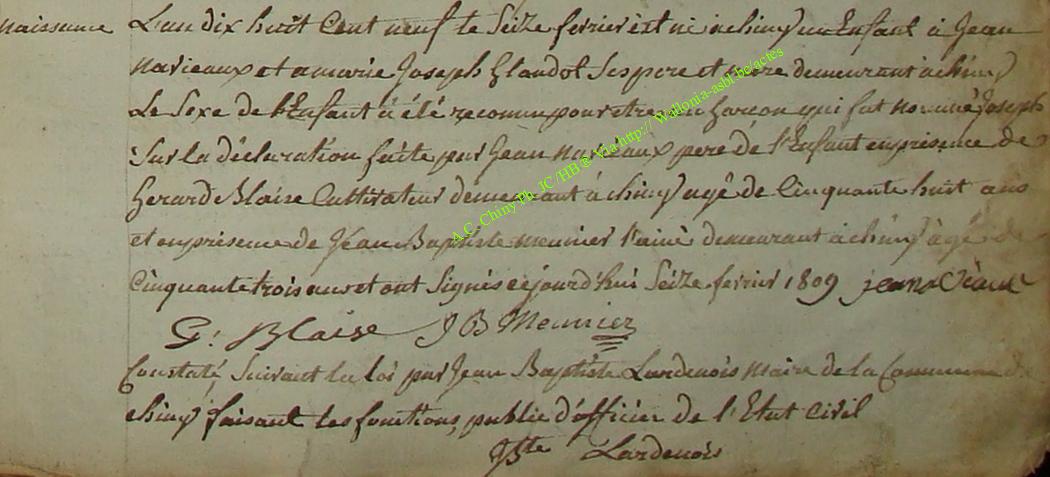 naissance L'an dix huit Cent neuf le Seize fevrier est né a chiny un Enfant á Jean
navieaux et a marie Joseph Glaudot Ses pere et mere demeurant a chiny
Le Sexe de l'Enfant á été reconnu pour etre un Garcon qui fut nommé Joseph
Sur la déclaration faite par Jean navieaux pere de l'Enfant en presence de
Gerard Blaise Cultivateur demeurant á chiny agé de Cinquante huit ans
et en presence de Jéan Baptiste meunier l'ainé demeurant á chiny agé de
Cinquante trois ans et ont Signés cejourd'hui Seize fevrier 1809 jean
G. Blaise JB Meunier
Constaté Suivant la loi par Jean Baptiste Lardenois Maire de la Commune de
chiny faisant les fonctions public d'officier de l'Etat Civil
JBte Lardenois
A.C. Chiny Ph. JC /HB @ Via http:// Wallonia-asbl.be/actes